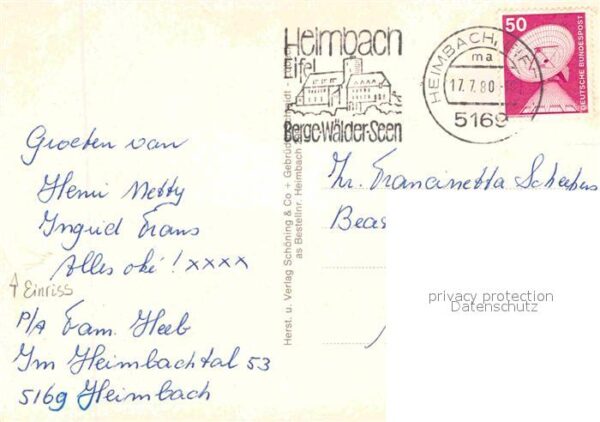 Groeten van
Henri Netty
Ingrid Frans
Alles oké! xxxx
↑ Einriss
P/A Fam. Heeb
Im Heimbachtal 53
5169 Heimbach
Herst. u. Verlag Schöning & Co + Gebrüder
as Bestellnr. Heimbach
Heimbach
Eifel
Berge-Wälder-Seen
HEIMBACH, EIFEL
ma
17.7.80
5169
50
DEUTSCHE BUNDESPOST
Francinetta
Beas
privacy protection
Datenschutz